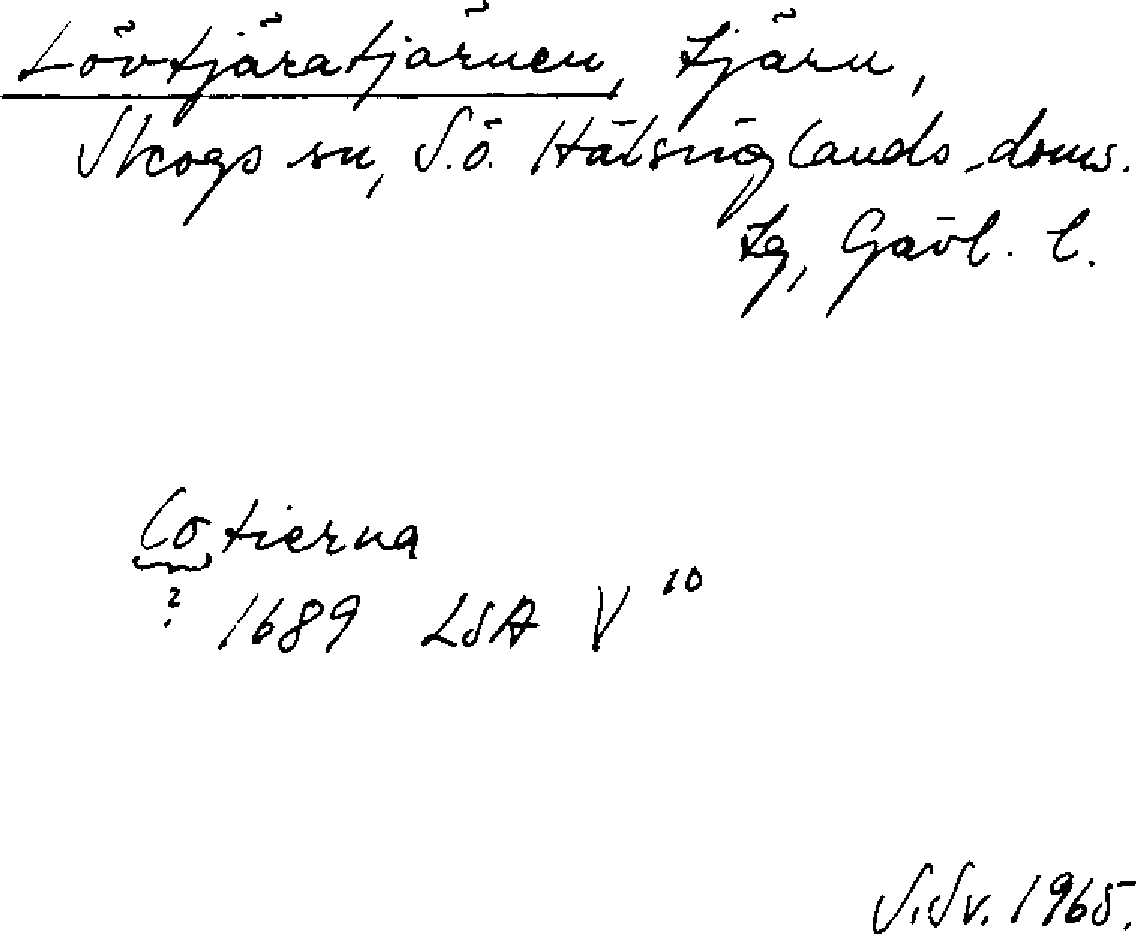 Lövtjäratjärnen, tjärn,
Skogs sn, S.ö. Hälsinglands doms.
tg, Gävl. l.
Lotierna
? 1689 LSA V 10
S.Sv. 1965.